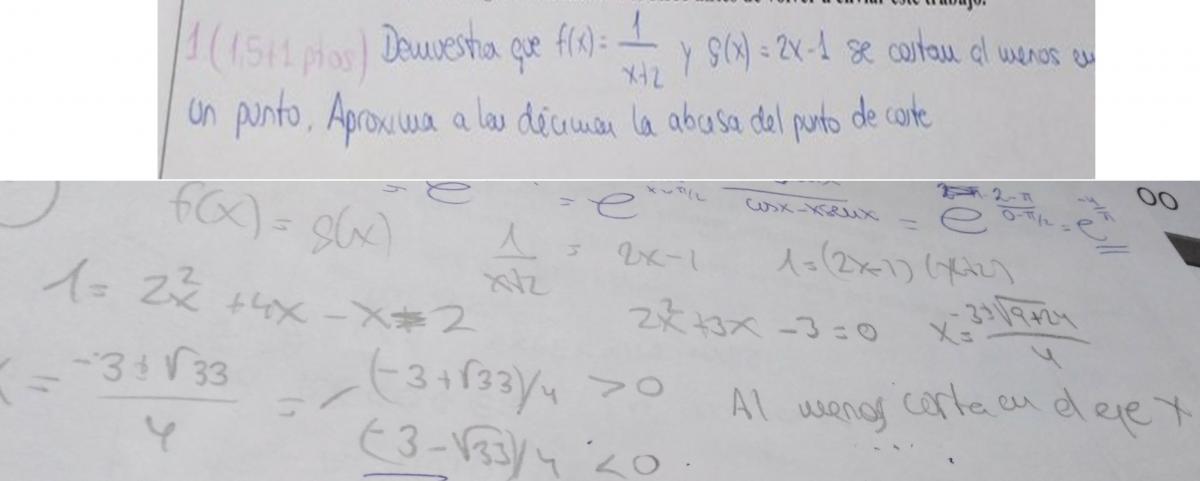 de volver a enviar este trabajo.
1 (1,5+1 ptos) Demuestra que f(x) = 1/(x+2) y g(x) = 2x-1 se cortan al menos en
un punto. Aproxima a las décimas la abcisa del punto de corte
= e = e^(x→π/2) cosx-xsenx = e^(2-π)/(0-π/2) = e^(-4/π) 00
f(x) = g(x) 1/(x+2) = 2x-1 1=(2x-1)(x+2)
1 = 2x² + 4x - x - 2 2x² + 3x - 3 = 0 x = (-3±√9+24)/4
x = (-3±√33)/4 = (-3+√33)/4 > 0 Al menos corta en el eje x
(-3-√33)/4 < 0.